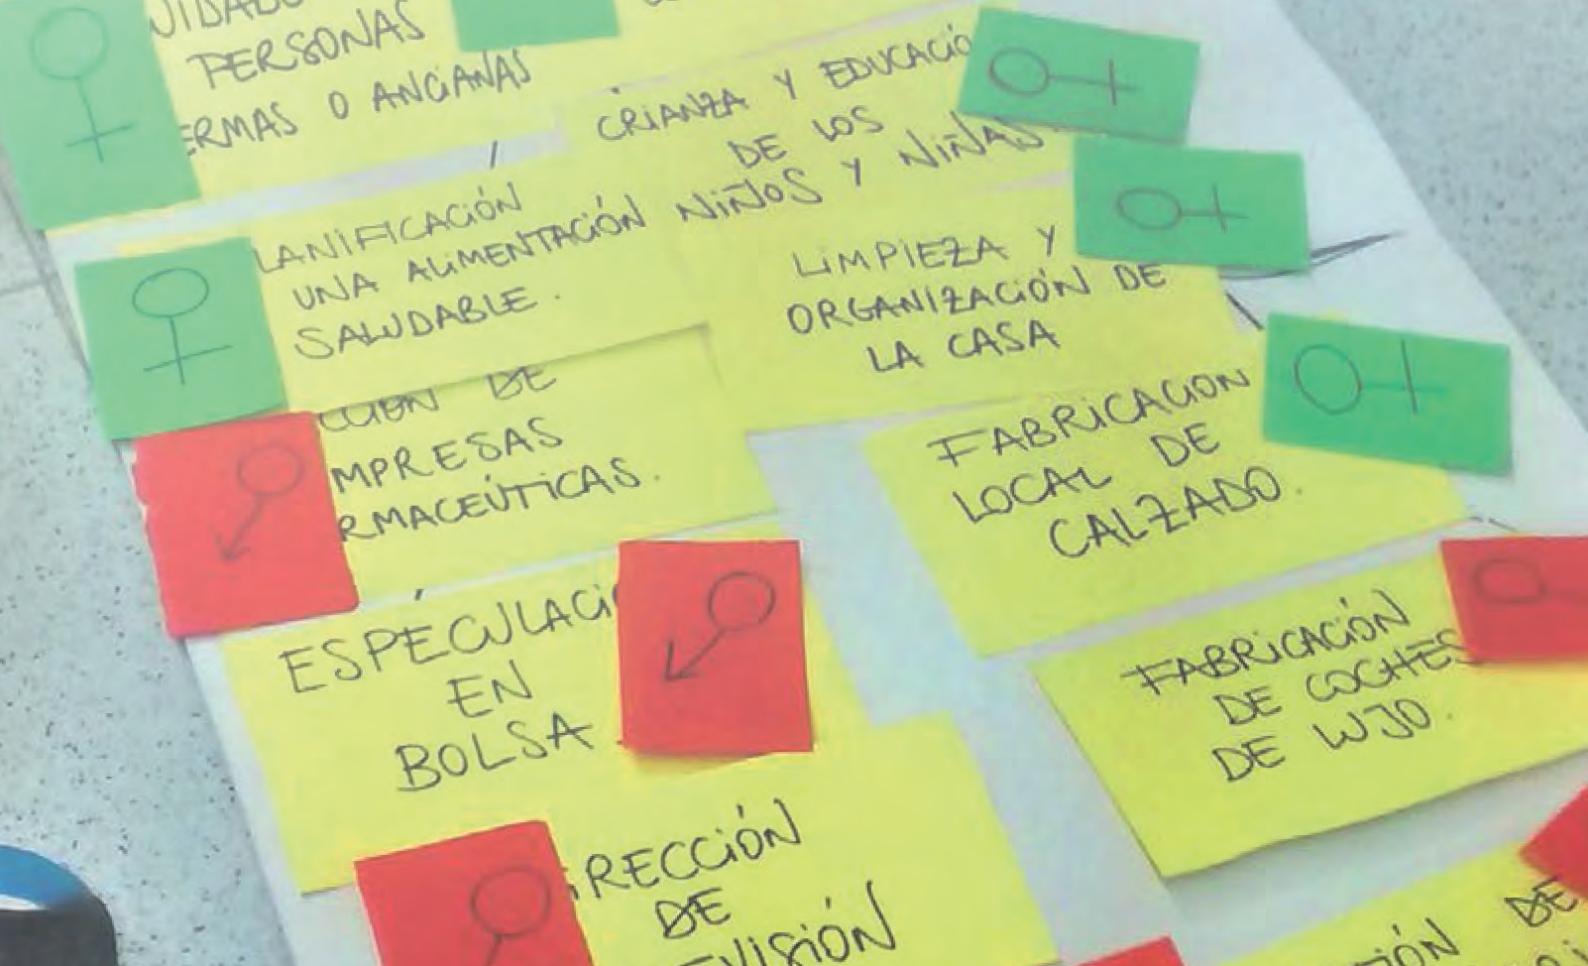 PERSONAS
O ANCIANAS
CRIANZA Y EDUCACIÓ
DE LOS
NIÑOS Y NIÑAS
LANIFICACIÓN
UNA ALIMENTACIÓN
SALUDABLE.
LIMPIEZA Y
ORGANIZACIÓN DE
LA CASA
CCIÓN DE
MPRESAS
RMACEÚTICAS.
FABRICACION
LOCAL DE
CALZADO.
ESPECULACIÓ
EN
BOLSA
FABRICACIÓN
DE COCHES
DE LUJO.
IRECCIÓN
DE
EVISIÓN
DE